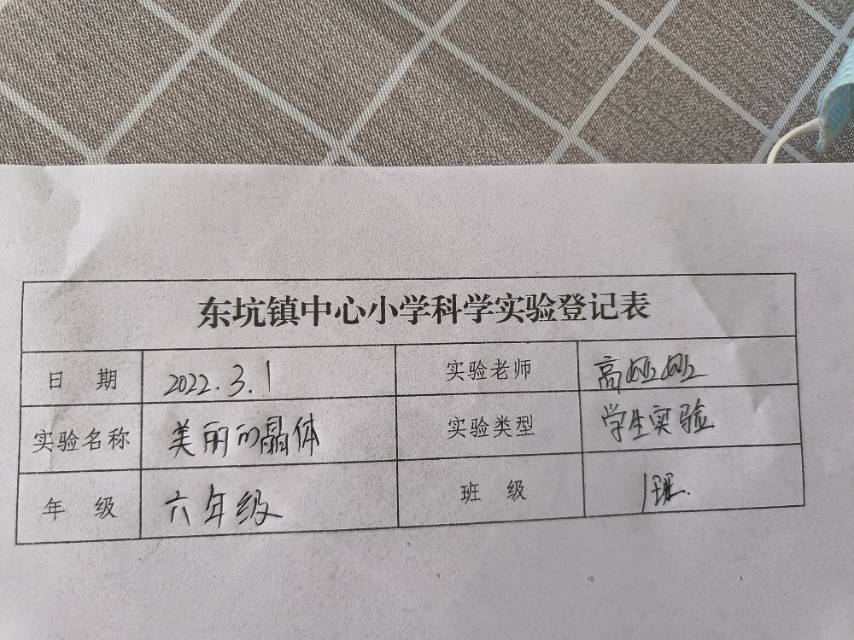 东坑镇中心小学科学实验登记表
日 期 2022.3.1 实验老师 高
实验名称 美丽的晶体 实验类型 学生实验
年 级 六年级 班 级 1班.